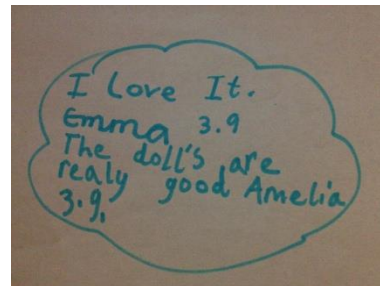 I Love It.
Emma 3.9
The doll's are
realy good Amelia
3.9.